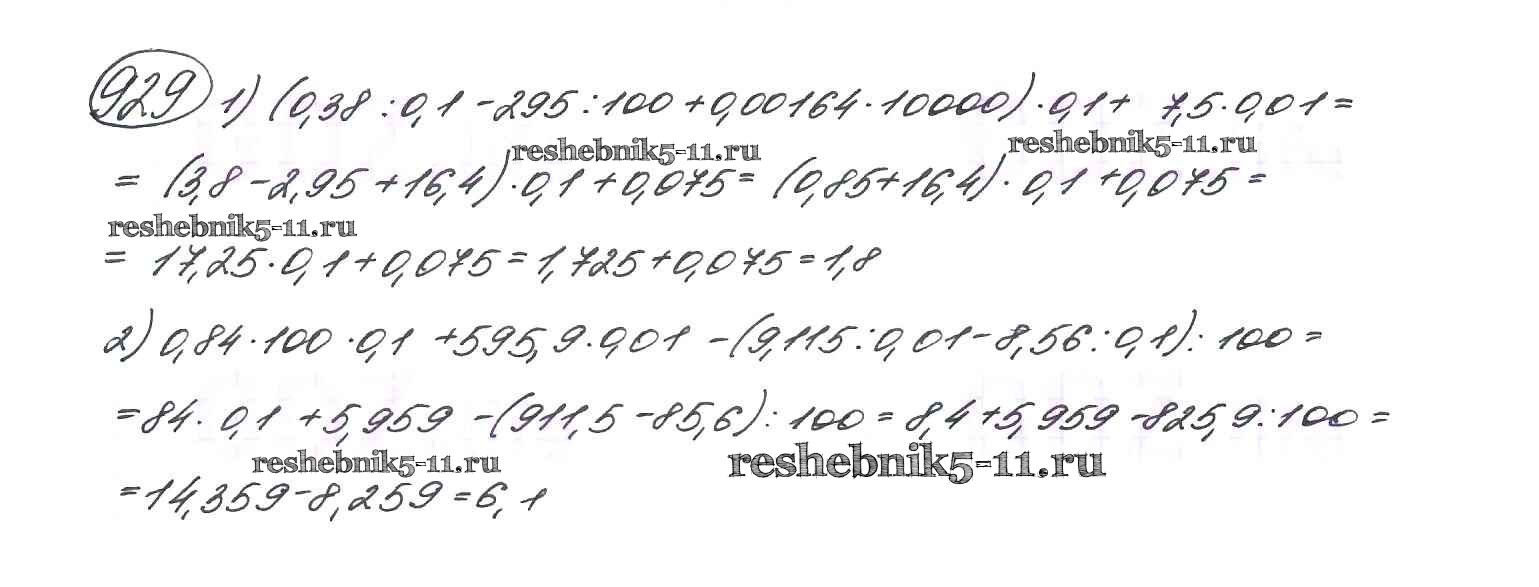 929 1) (0,38 : 0,1 - 295 : 100 + 0,00164 · 10000) · 0,1 + 7,5 · 0,01 =
reshebnik5-11.ru reshebnik5-11.ru
= (3,8 - 2,95 + 16,4) · 0,1 + 0,075 = (0,85 + 16,4) · 0,1 + 0,075 =
reshebnik5-11.ru
= 17,25 · 0,1 + 0,075 = 1,725 + 0,075 = 1,8
2) 0,84 · 100 · 0,1 + 595,9 · 0,01 - (9,115 : 0,01 - 8,56 : 0,1) : 100 =
= 84 · 0,1 + 5,959 - (911,5 - 85,6) : 100 = 8,4 + 5,959 - 825,9 : 100 =
reshebnik5-11.ru reshebnik5-11.ru
= 14,359 - 8,259 = 6,1